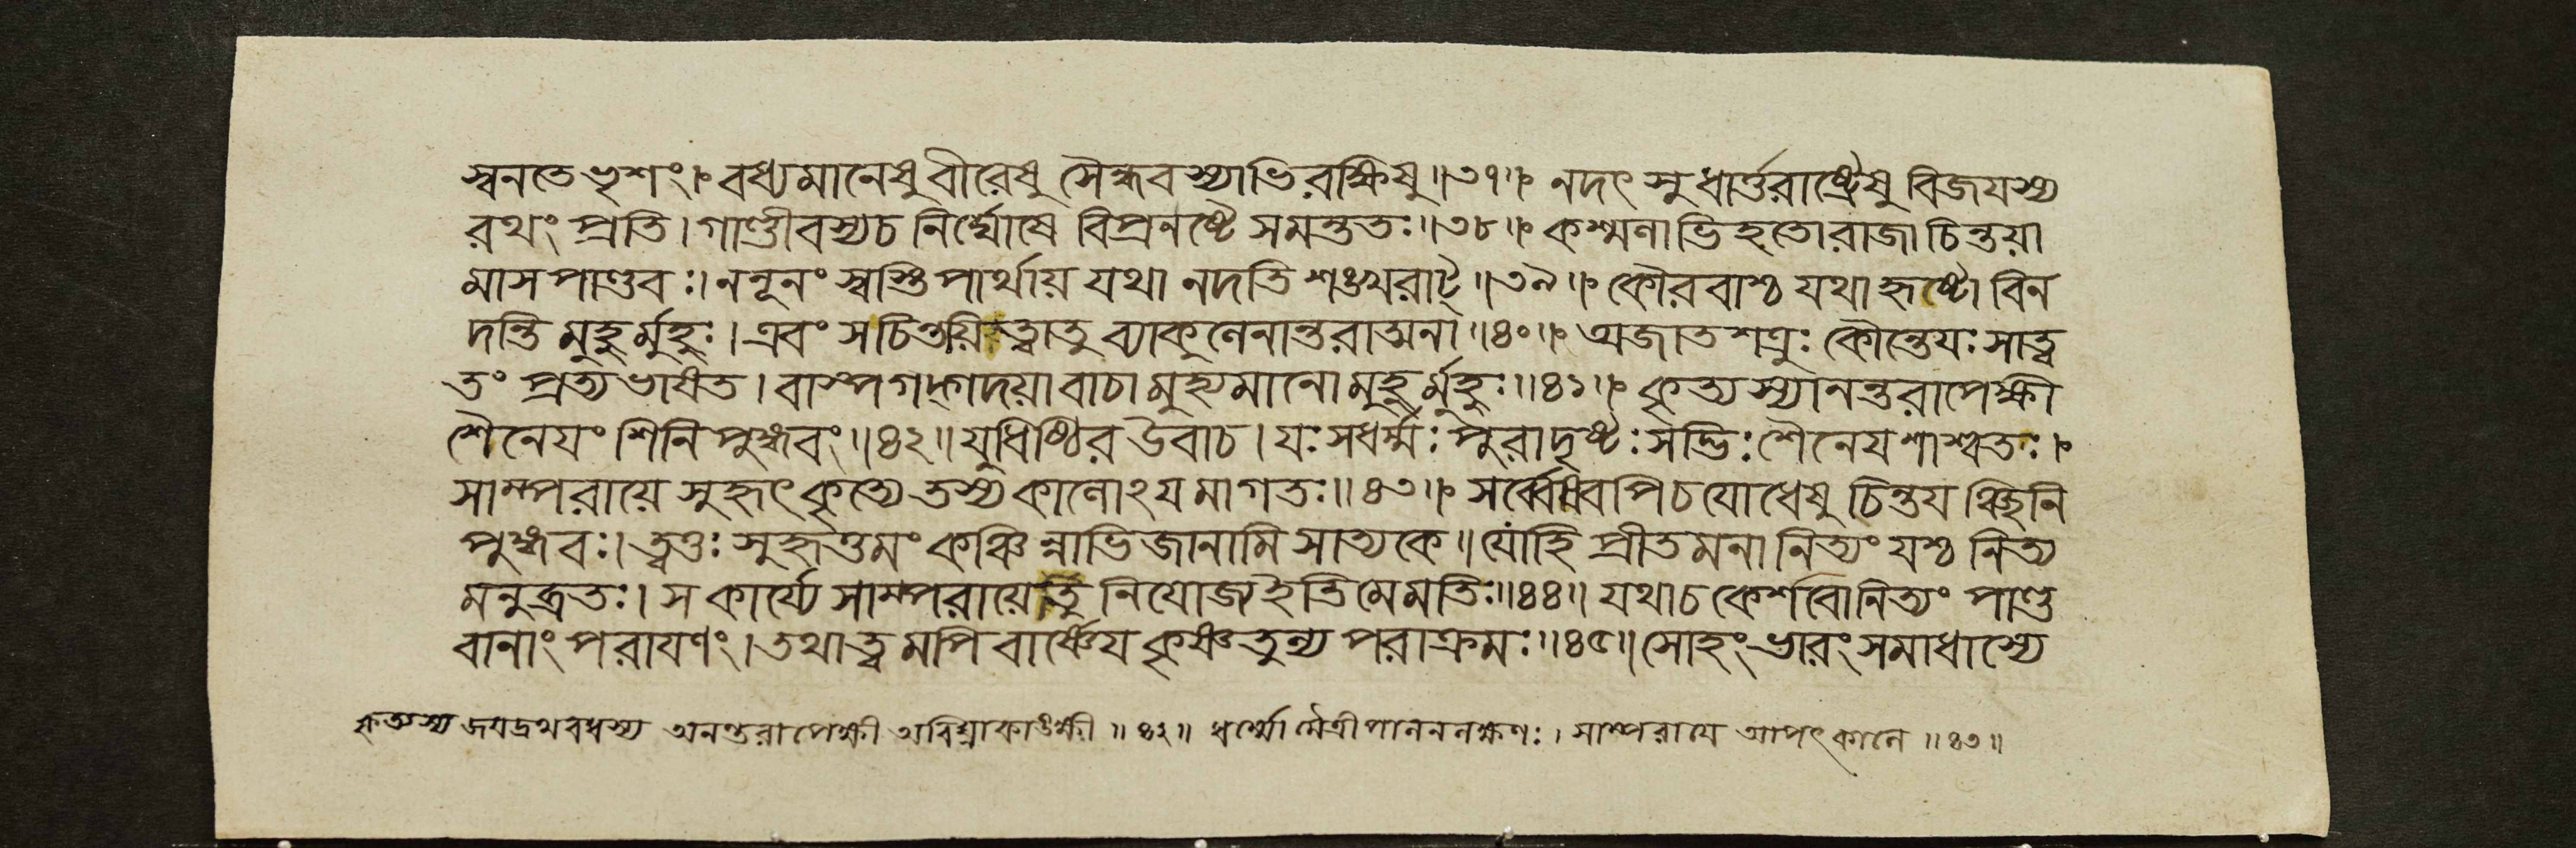 স্বনতে ভৃশং। বধ্যমানেষু বীরেষু সৈন্ধবস্যাভিরক্ষিষু॥৩৭॥ নদৎ সুধার্ত্তরাষ্ট্রেষু বিজয়স্য
রথং প্রতি। গাণ্ডীবস্যচ নির্ঘোষে বিপ্রনষ্টে সমন্ততঃ॥৩৮॥ কশ্মলাভিহতো রাজা চিন্তয়া
মাস পাণ্ডবঃ। ন নূনং স্বস্তি পার্থায় যথা নদতি শঙ্খরাট্॥৩৯॥ কৌরবাশ্চ যথা হৃষ্টা বিন
দন্তি মুহুর্মুহুঃ। এবং স চিন্তয়িত্বাতু ব্যাকুলেনান্তরাত্মনা॥৪০॥ অজাতশত্রুঃ কৌন্তেয়ঃ সাত্ব
তং প্রত্যভাষত। বাষ্পগদ্গদয়া বাচা মুহ্যমানো মুহুর্মুহুঃ॥৪১॥ কৃত্যস্যানন্তরাপেক্ষী
শৈনেয়ং শিনিপুঙ্গবং॥৪২॥ যুধিষ্ঠির উবাচ। যঃ সধর্ম্মঃ পুরাদৃষ্টঃ সদ্ভিঃ শৈনেয় শাশ্বতঃ।
সাম্পরায়ে সুহৃৎকৃত্যে তস্য কালোঽয়মাগতঃ॥৪৩॥ সর্ব্বেষ্বপিচ যোধেষু চিন্তয়ঞ্ছিনি
পুঙ্গবঃ। ত্বত্তঃ সুহৃত্তমং কঞ্চিন্নাভিজানামি সাত্যকে॥ যোহি প্রীতমনা নিত্যং যশ্চ নিত্য
মনুব্রতঃ। স কার্য্যে সাম্পরায়েতু নিযোজ্য ইতি মে মতিঃ॥৪৪॥ যথাচ কেশবো নিত্যং পাণ্ড
বানাং পরায়ণং। তথা ত্বমপি বার্ষ্ণেয় কৃষ্ণতুল্য পরাক্রমঃ॥৪৫॥ সোহং ভারং সমাধাস্যে
কৃত্যস্য জয়দ্রথবধস্য অনন্তরাপেক্ষী অবিঘ্নাকাঙ্ক্ষী॥৪২॥ ধর্ম্মো মৈত্রীপালনলক্ষণঃ। সাম্পরায়ে আপৎকালে॥৪৩॥